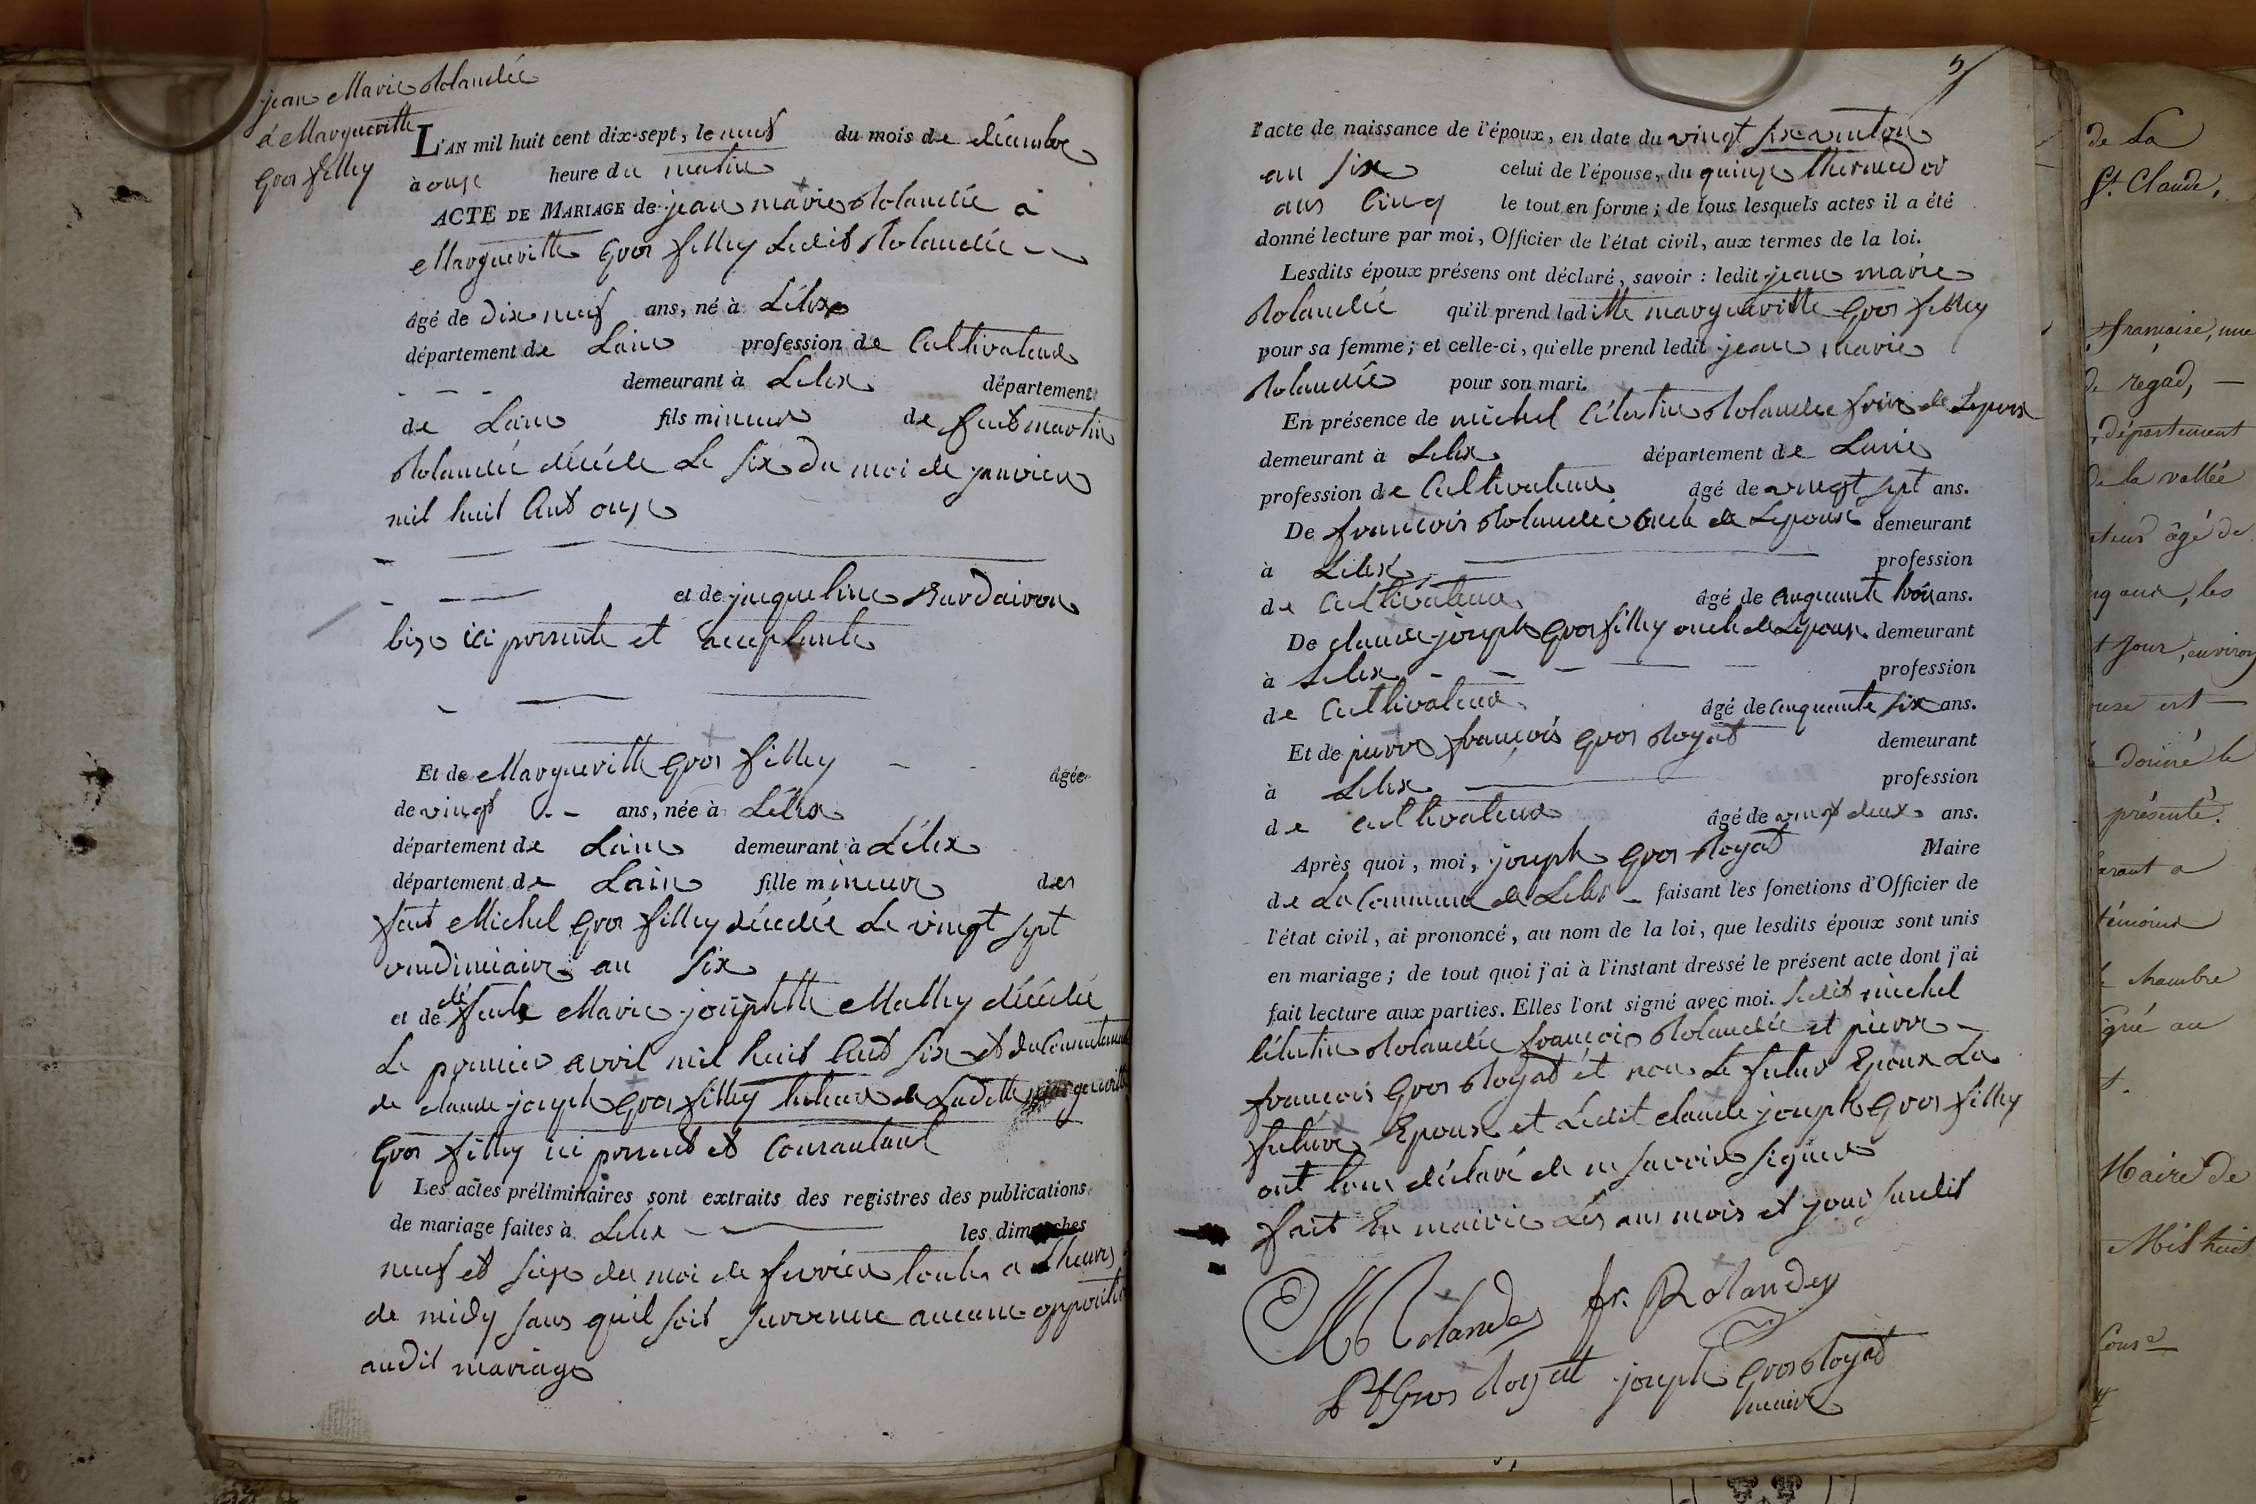 jean Marie Rolandée
à Margueritte
Gros filley
L'AN mil huit cent dix-sept, le neuf du mois de décembre
à onze heure du matin
ACTE DE MARIAGE de jean marie Rolandée à
Margueritte Gros filley Ledit Rolandée
âgé de dix neuf ans, né à Lélex
département de Lain profession de Cultivateur
demeurant à Lelex département
de Lain fils mineur de feut martin
Rolandée décéde Le six du moi de janvier
mil huit Cent onze
et de jacqueline Burdairon
bise ici presente et acceptante
Et de Margueritte Gros filley âgée
de vingt ans, née à Lélex
département de Lain demeurant à Lélex
département de Lain fille mineure des
feut Michel Gros filley décédée Le vingt sept
vendimiaire an six
et de défeute Marie josephtte Malley décédée
Le premier avril mil huit Cent six et du Consentement
de claude joseph Gros filley tuteur de Laditte margueritte
Gros filley ici present et Consantant
Les actes préliminaires sont extraits des registres des publications
de mariage faites à Lelex les dimanches
neuf et seize du moi de fevrier toutes a heures
de midy sans quil soit survenue aucune opposition
audit mariage
l'acte de naissance de l'époux, en date du vingt six ventose
an six celui de l'épouse, du quinze thermidor
ans Cinq le tout en forme; de tous lesquels actes il a été
donné lecture par moi, Officier de l'état civil, aux termes de la loi.
Lesdits époux présens ont déclaré, savoir: ledit jean marie
Rolandée qu'il prend laditte margueritte Gros filley
pour sa femme; et celle-ci, qu'elle prend ledit jean marie
Rolandée pour son mari.
En présence de michel Célestin Rolandée frere de Lepoux
demeurant à Lelex département de Lain
profession de Cultivateur âgé de vingt sept ans.
De françois Rolandée oncle de Lepoux demeurant
à Lelex profession
de Cultivateur âgé de cinquante trois ans.
De claude joseph Gros filley oncle de Lepouse demeurant
à Lelex profession
de Cultivateur âgé de cinquante six ans.
Et de pierre françois Gros Royat demeurant
à Lelex profession
de cultivateur âgé de vingt deux ans.
Après quoi, moi, joseph Gros Royat Maire
de La Commune de Lelex faisant les fonctions d'Officier de
l'état civil, ai prononcé, au nom de la loi, que lesdits époux sont unis
en mariage; de tout quoi j'ai à l'instant dressé le présent acte dont j'ai
fait lecture aux parties. Elles l'ont signé avec moi. Ledit michel
Célestin Rolandée françois Rolandée et pierre
françois Gros Royat et non Le futur Epoux La
future Epouse et Ledit claude joseph Gros filley
ont tous déclaré de ne savoir signer
fait En mairie Les ans mois et jour susdit
MC Rolandey fr. Rolandey
PF Gros Royat joseph Gros Royat
maire
de La
St. Claude,
française, une
de régad,
département
de la vallée
âgé de
ans, les
jour, environ
est
donné le
présenté.
témoins
chambre
signé au
Maire de
Mil huit